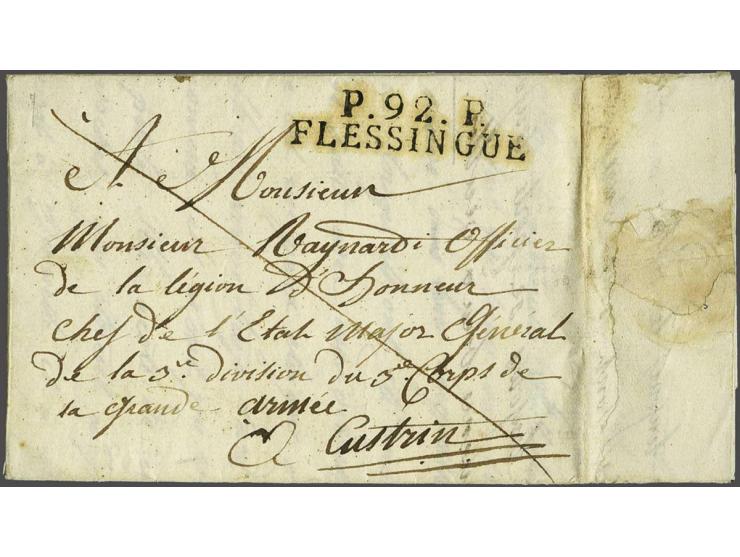 P.92.P.
FLESSINGUE
A Monsieur
Monsieur Raynardi Officier
de la légion D'honneur
chef de l'Etat Major Général
de la 3.e division du 3.e Corps de
la grande armée
a Custrin